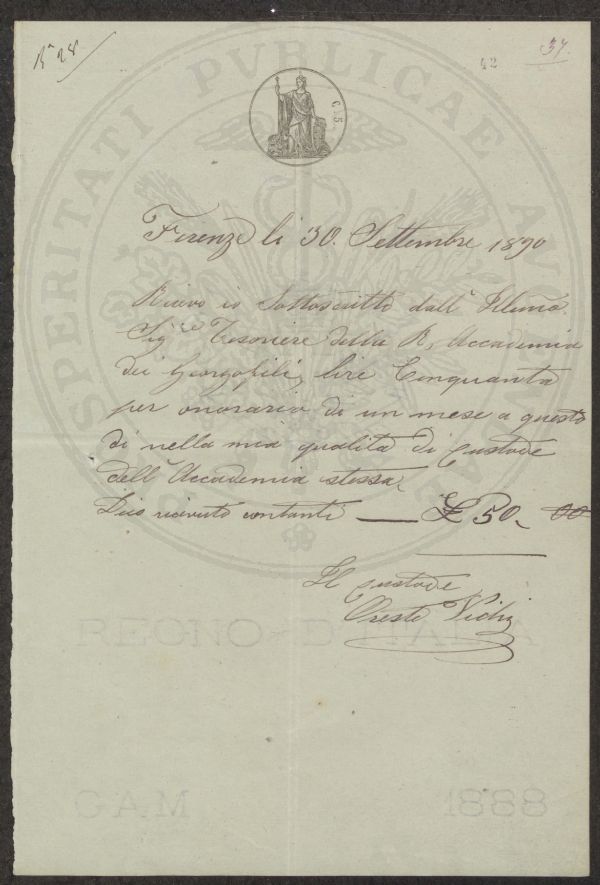 N° 28
42
37
PROSPERITATI PVBLICAE AVGENDAE
C. 5.
Firenze li 30. Settembre 1890
Ricevo io Sottoscritto dall' Illmo.
Sig.re Tesoriere della R. Accademia
dei Georgofili, lire Cinquanta
per onorario di un mese a questo
dì nella mia qualità di Custode
dell' Accademia stessa
Dico ricevuto contanti — £ 50 - 00
Il custode
Oreste
REGNO D'ITALIA
GAM 1888